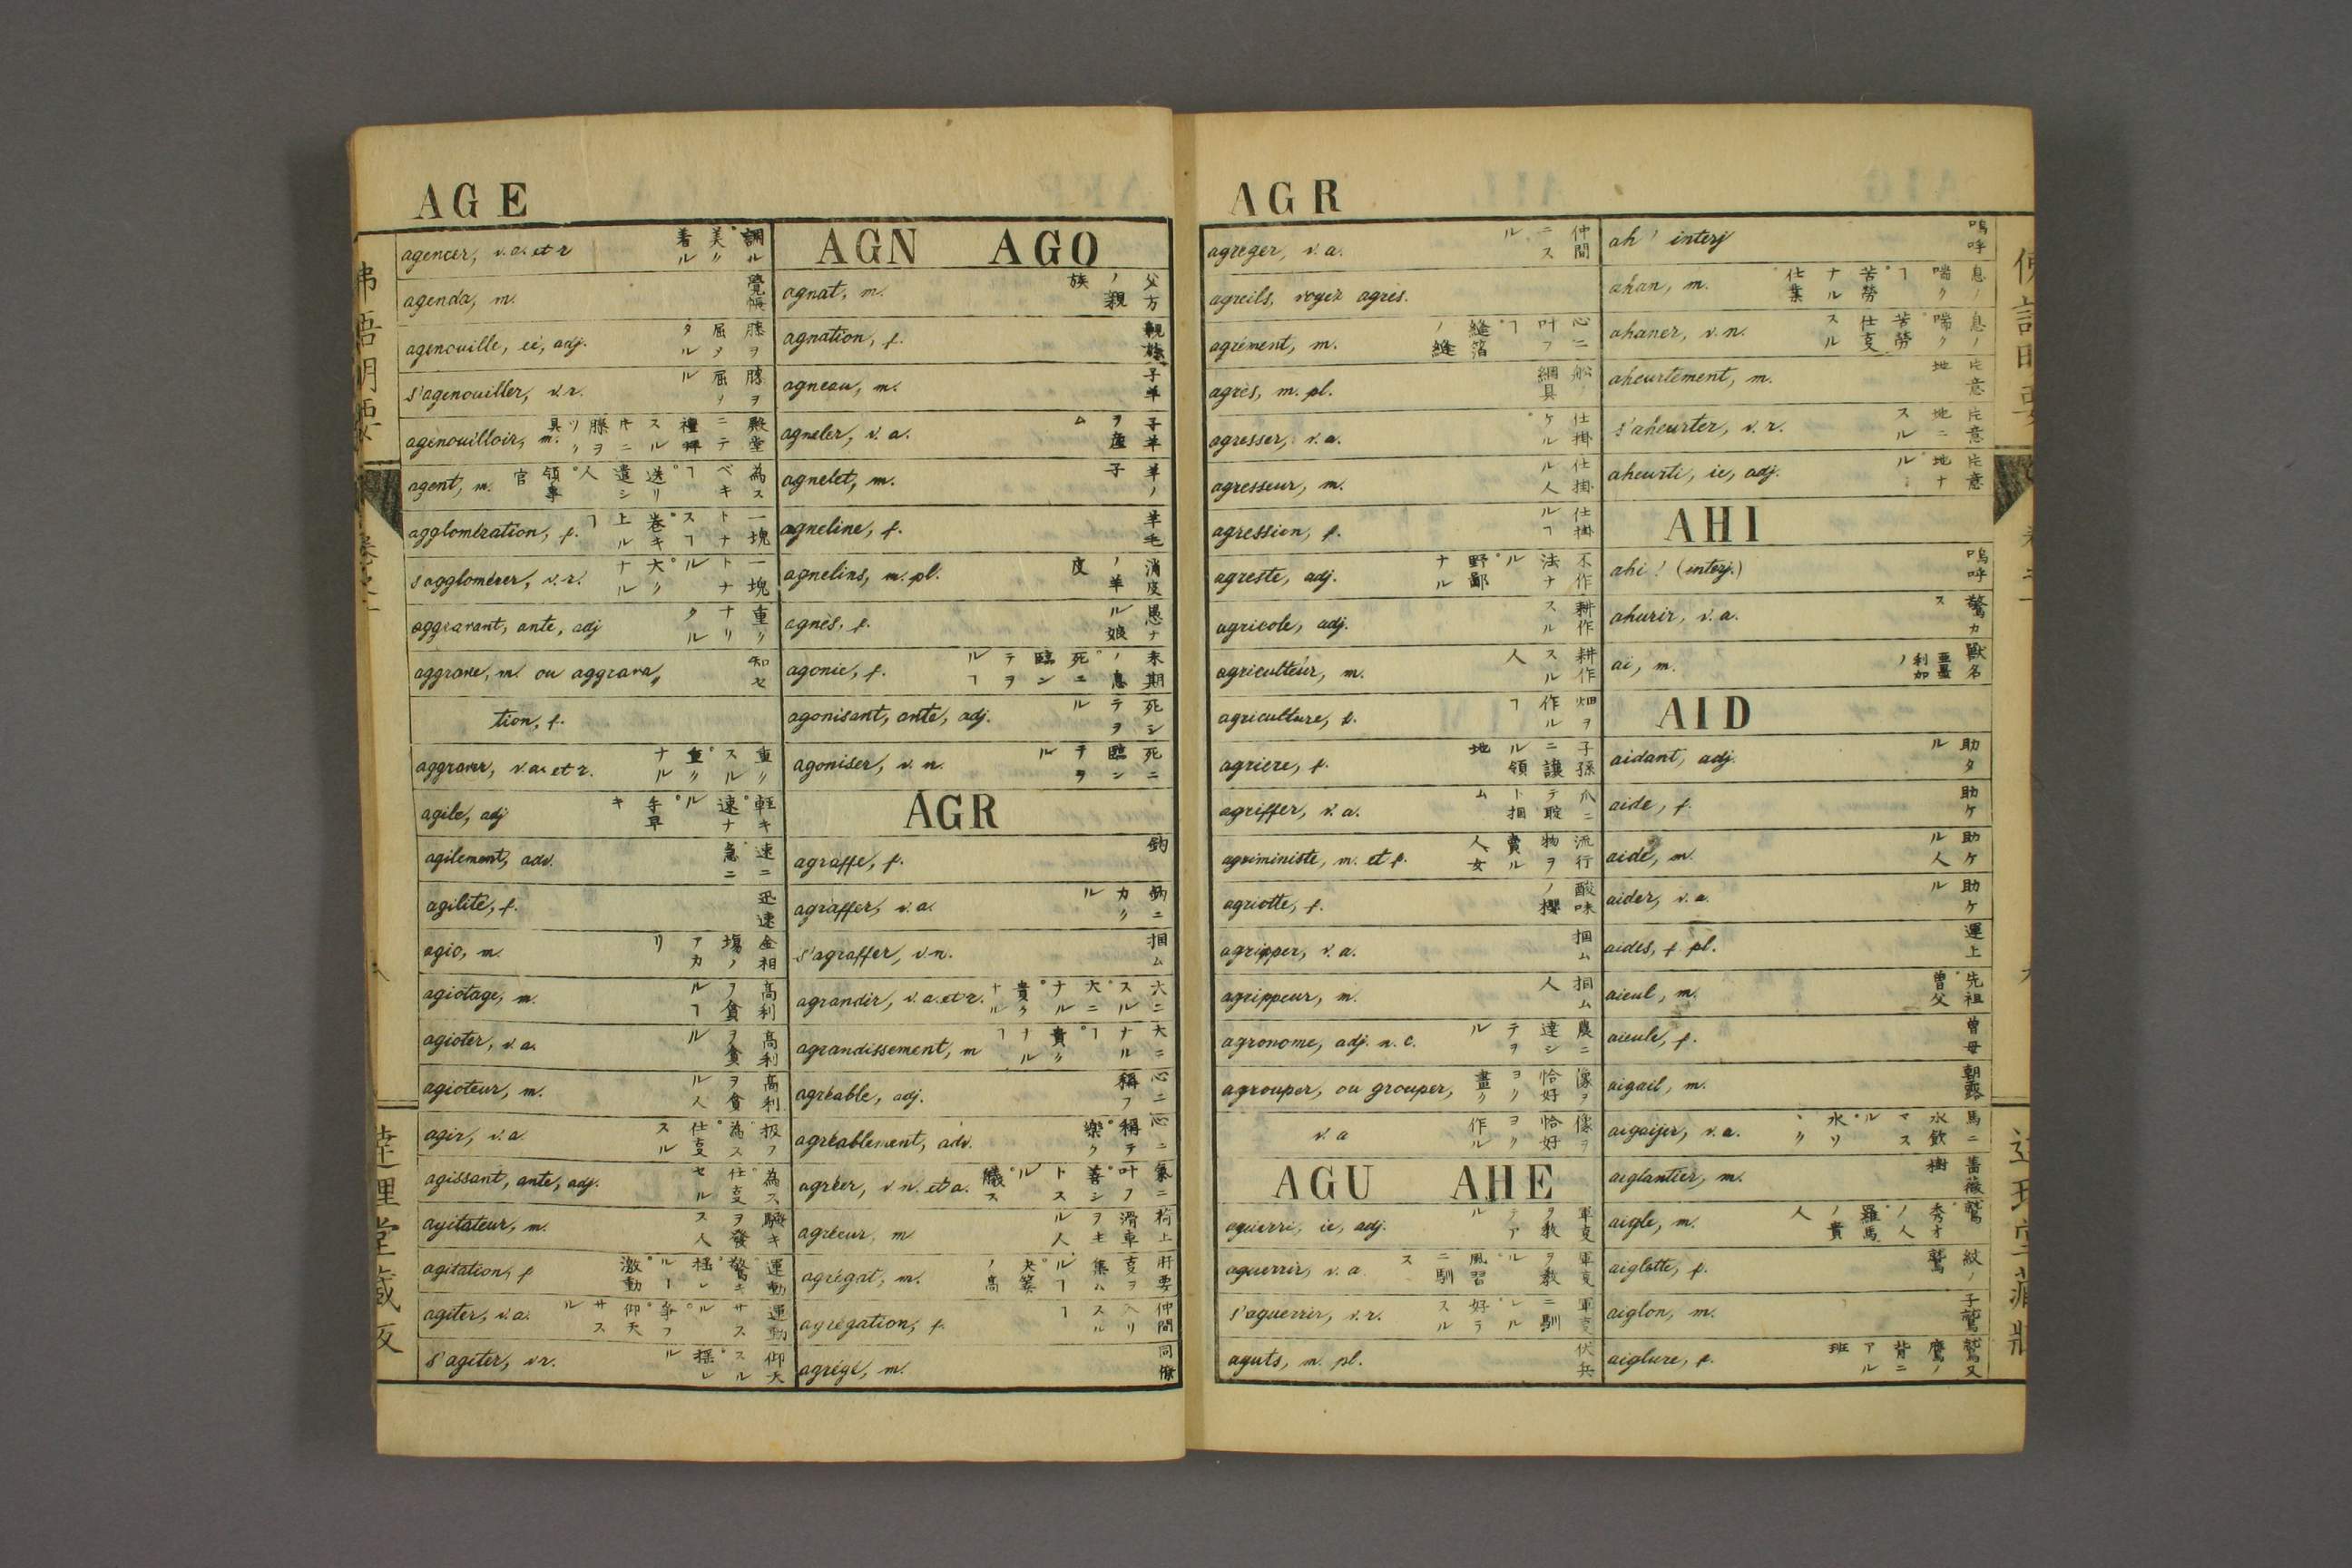 AGE
agencer, v.a. et r 調ル。美リ着ル
agenda, m. 覺帳
agenouillé, ée, adj. 膝ヲ屈タル
s'agenouiller, v.r. 膝ヲ屈ル
agenouilloir, m. 殿堂ニテ禮拝スル
agent, m. 為スベキヿ。送リ遣シ人。領事官
agglomération, f. 一塊トナスヿ。巻キ上ルヿ
s'agglomérer, v.r. 一塊トナル。大リナル
aggravant, ante, adj 重リナリタル
aggrave, m. ou aggrava,, 知セ
tion, f.
aggraver, v.a. et r. 重リスル。重リナル
agile, adj 軽キ。速ナル。手早キ
agilement, adv. 速ニ。急ニ
agilité, f. 迅速
agio, m. 金相塲ノアガリ
agiotage, m. 高利ヲ貪ルヿ
agioter, v.a. 高利ヲ貪ル
agioteur, m. 高利ヲ貪ル人
agir, v.a. 扱フ。為ス。仕事スル
agissant, ante, adj. 為ス。仕事セル
agitateur, m. 騒キヲ發ス人
agitation, f 運動。驚キ。揺レルー。激動
agiter, v.a. 運動サス。争フ。仰天サスル
s'agiter, v.r. 仰天スル。揺レル
AGN AGO
agnat, m. 父方ノ親族
agnation, f. 親族
agneau, m. 子羊
agneler, v.a. 子羊ヲ産ム
agnelet, m. 羊ノ子
agneline, f. 羊毛
agnelins, m. pl. 羊皮
agnès, f. 愚ナル娘
agonie, f. 末期ノ息。死ニ臨ンテヲルヿ
agonisant, ante, adj. 死シテヲル
agoniser, v.n. 死ニ臨ンテヲル
AGR
agraffe, f. 鈎
agraffer, v.a. 鈎ニカリル
s'agraffer, v.n. 掴ム
agrandir, v.a. et r. 大ニスル。大ニナル。貴クナル
agrandissement, m 大ニナルヿ。貴リナルヿ
agréable, adj. 心ニ稱フ
agréablement, adv. 心ニ稱テ。樂ク
agréer, v.n. et a. 氣ニ叶フ。善シトスル
agréeur, m
agrégat, m. 肝要
agrégation, f. 仲間入リスルヿ
agrégé, m. 同僚
AGR
agreger, v.a. 仲間ニスル
agreils, voyez agrès.
agrément, m. 心ニ叶フヿ。縫箔ノ縫
agrès, m. pl. 舩ノ綱具
agresser, v.a. 仕掛ケル
agresseur, m. 仕掛ル人
agression, f. 仕掛ルヿ
agreste, adj. 不作法ナル。野鄙ナル
agricole, adj. 耕作スル
agriculteur, m. 耕作スル人
agriculture, f. 畑ヲ作ルヿ
agriere, f. 子孫ニ譲ル領地
agriffer, v.a. 爪ニテ掴ム
agriministe, m. et f. 流行物ヲ賣ル人女
agriotte, f. 酸味ノ櫻
agripper, v.a. 掴ム
agrippeur, m. 掴ム人
agronome, adj. n. c. 農ニ達シテヲル
agrouper, ou grouper, 像ヲ恰好ヨリ畫リ
v.a 像ヲ恰好ヨク作ル
AGU AHE
aguerri, ie, adj. 軍事ヲ教テアル
aguerrir, v.a. 軍事ヲ教ル。風習ニ馴ス
s'aguerrir, v.r. 軍事ニ馴レル。好テスル
aguts, m. pl. 伏兵
ah! interj 嗚呼
ahan, m. 息ノ喘クヿ。苦勞ナル仕業
ahaner, v.n. 息ノ喘ク。苦勞仕事スル
aheurtement, m. 片意地
s'aheurter, v.r. 片意地ニスル
aheurté, ée, adj. 片意地ナル
AHI
ahi! (interj.) 嗚呼
ahurir, v.a. 驚カス
ai, m. 獸名 亜墨利加ノ
AID
aidant, adj. 助タル
aide, f. 助ケ
aide, m. 助ケル人
aider, v.a. 助ケル
aides, f pl. 運上
aieul, m. 先祖。曽父
aieule, f. 曽母
aigail, m. 朝露
aigaijer, v.a. 馬ニ水飲マスル。水ソソク
aiglantier, m. 薔薇樹
aigle, m. 鷲。秀才ノ人。羅馬ノ貴人
aiglette, f. 紋ノ鷲
aiglon, m. 子鷲
aiglure, f. 鷲又鷹ノ背ニアル班
達理堂蔵版